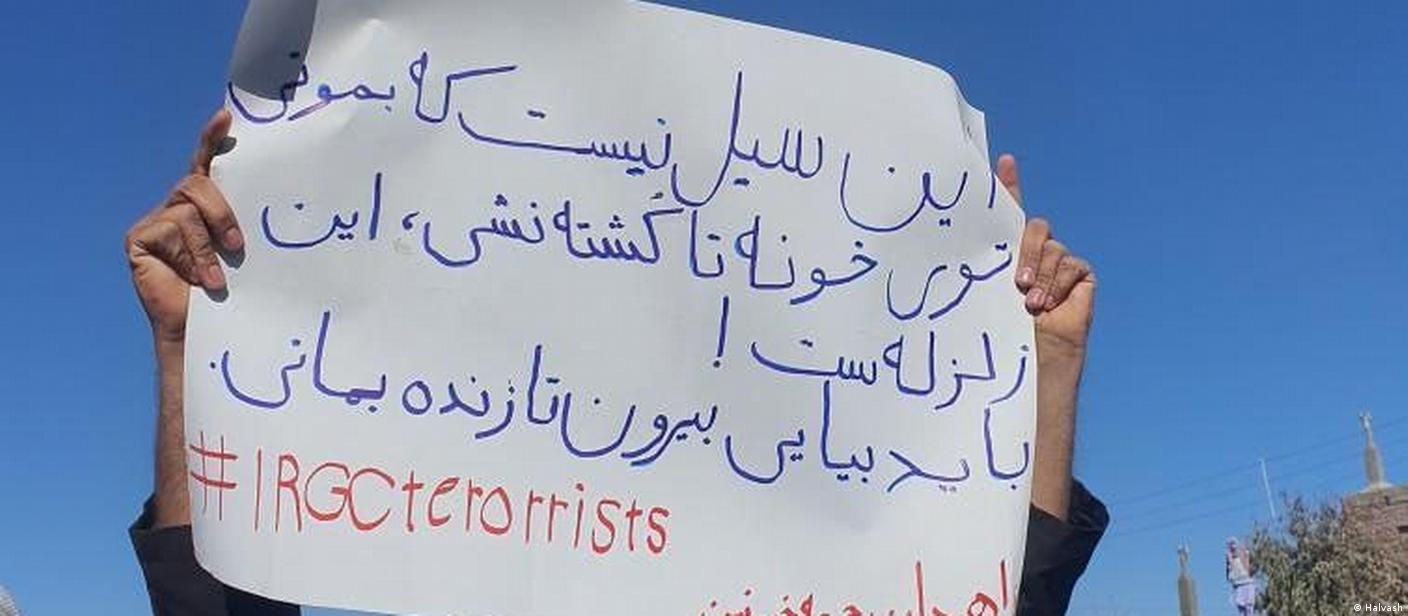 این سیل نیست که بمونی
توی خونه تا کُشته نشی، این
زلزله ست!
باید بیایی بیرون تا زنده بمانی.
#IRGCterorrists
© Halvash